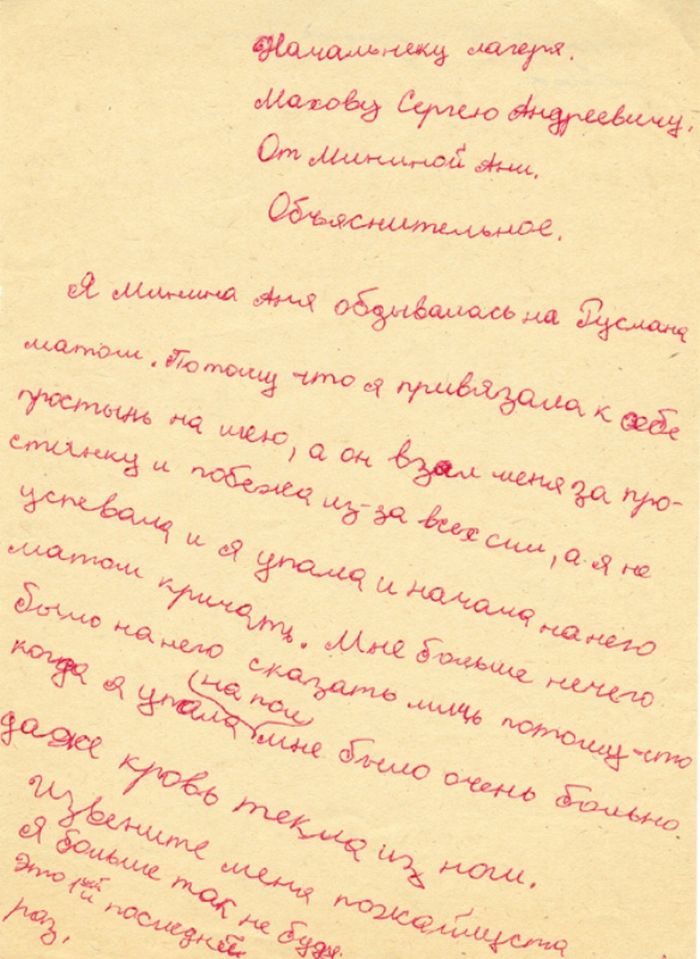 Начальнеку лагеря.
Махову Сергею Андреевичу.
От Мининой Ани.
Объяснительное.
Я Минина Аня обзывалась на Руслана
матом. Потому что я привязала к себе
простынь на шею, а он взял меня за про-
стынку и побежа из-за всех сил, а я не
успевала и я упала и начала на него
матом кричать. Мне больше нечего
было на него сказать лишь потому-что
когда я упала на пол мне было очень больно
даже кровь текла из ноги.
Извените меня пожалйцста
Я больше так не буду.
Это 1ый и последней
раз.